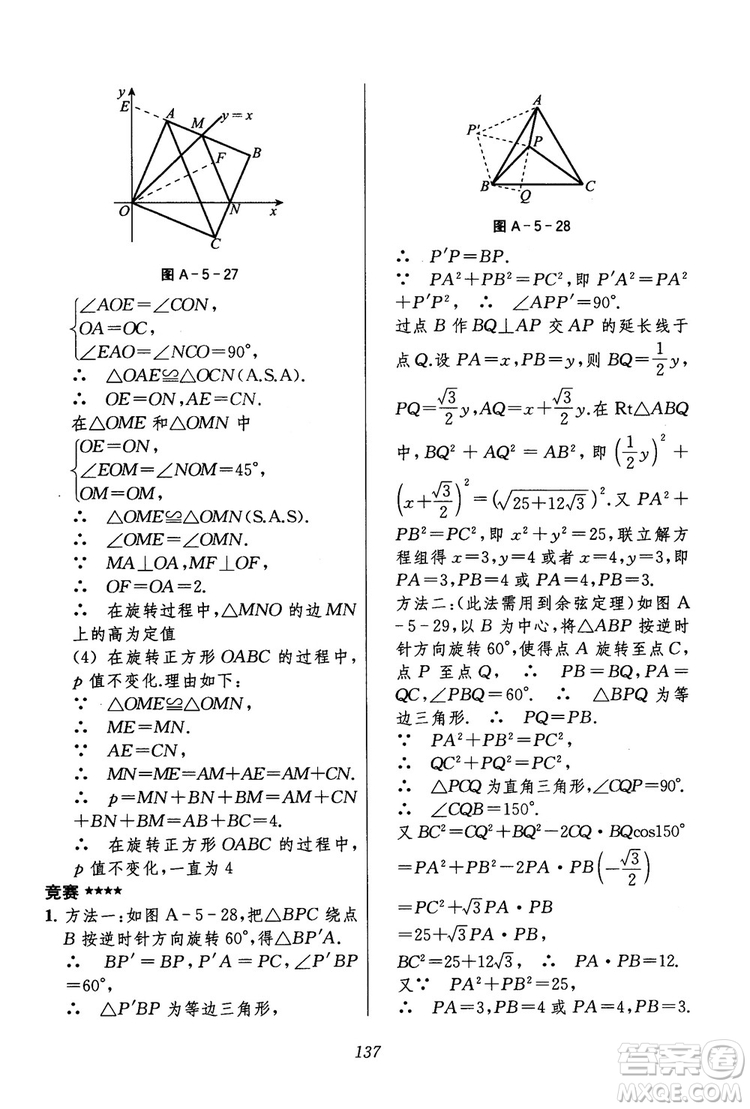 y
E
A
M
y=x
B
F
O
N
x
C
图 A-5-27
{∠AOE=∠CON,
OA=OC,
∠EAO=∠NCO=90°,
∴ △OAE≌△OCN(A.S.A).
∴ OE=ON,AE=CN.
在△OME 和△OMN 中
{OE=ON,
∠EOM=∠NOM=45°,
OM=OM,
∴ △OME≌△OMN(S.A.S).
∴ ∠OME=∠OMN.
∵ MA⊥OA,MF⊥OF,
∴ OF=OA=2.
∴ 在旋转过程中,△MNO 的边 MN
上的高为定值
(4) 在旋转正方形 OABC 的过程中,
p 值不变化.理由如下:
∵ △OME≌△OMN,
∴ ME=MN.
∵ AE=CN,
∴ MN=ME=AM+AE=AM+CN
∴ p=MN+BN+BM=AM+CN
+BN+BM=AB+BC=4.
∴ 在旋转正方形 OABC 的过程中,
p 值不变化,一直为 4
竞赛 ★★★★
1. 方法一:如图 A-5-28,把△BPC 绕点
B 按逆时针方向旋转 60°,得△BP′A.
∴ BP′=BP,AP′=PC,∠P′BP=
60°,
∴ △P′BP 为等边三角形,
A
P′
P
B
Q
C
图 A-5-28
∴ P′P=BP.
∵ PA²+PB²=PC²,即 P′A²=PA²
+P′P², ∴ ∠APP′=90°.
过点 B 作 BQ⊥AP 交 AP 的延长线于
点 Q.设 PA=x,PB=y,则 BQ=1/2 y,
PQ=√3/2 y,AQ=x+√3/2 y.在 Rt△ABQ
中,BQ²+AQ²=AB²,即 (1/2 y)²+
(x+√3/2)²=(√(25+12√3))².又 PA²+
PB²=PC²,即 x²+y²=25,联立解方
程组得 x=3,y=4 或者 x=4,y=3.即
PA=3,PB=4 或 PA=4,PB=3.
方法二:(此法需用到余弦定理)如图 A
-5-29,以 B 为中心,将△ABP 按逆时
针方向旋转 60°,使得点 A 旋转至点 C,
点 P 至点 Q, ∴ PB=BQ,PA=
QC,∠PBQ=60°. ∴ △BPQ 为等
边三角形. ∴ PQ=PB.
∵ PA²+PB²=PC²,
∴ QC²+PQ²=PC²,
∴ △PCQ 为直角三角形,∠CQP=90°.
∴ ∠CQB=150°.
又 BC²=CQ²+BQ²-2CQ·BQcos150°
=PA²+PB²-2PA·PB(-√3/2)
=PA²+PB²+√3PA·PB
=25+√3PA·PB,
BC²=25+12√3, ∴ PA·PB=12.
又∵ PA²+PB²=PC²=25,
∴ PA=3,PB=4 或 PA=4,PB=3.
137
答案卷
MXQE.COM